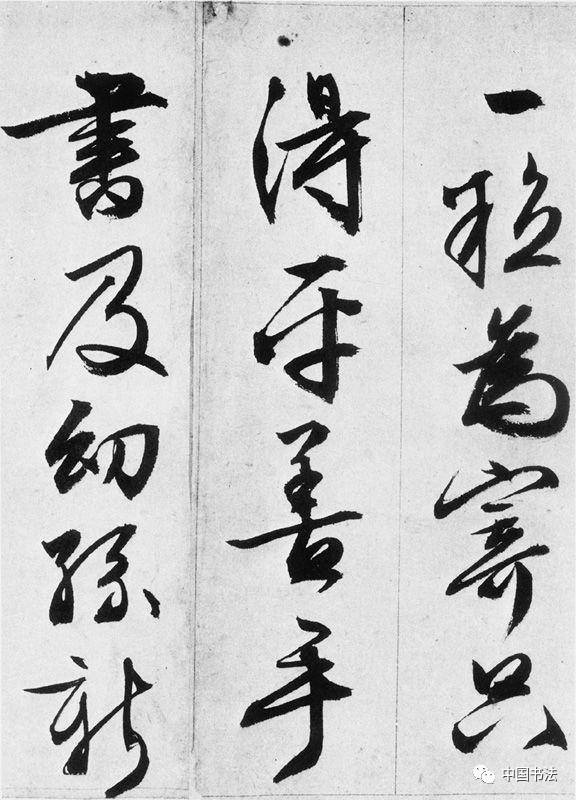 一為寄只
得平善手
書及幼孫新
中国书法